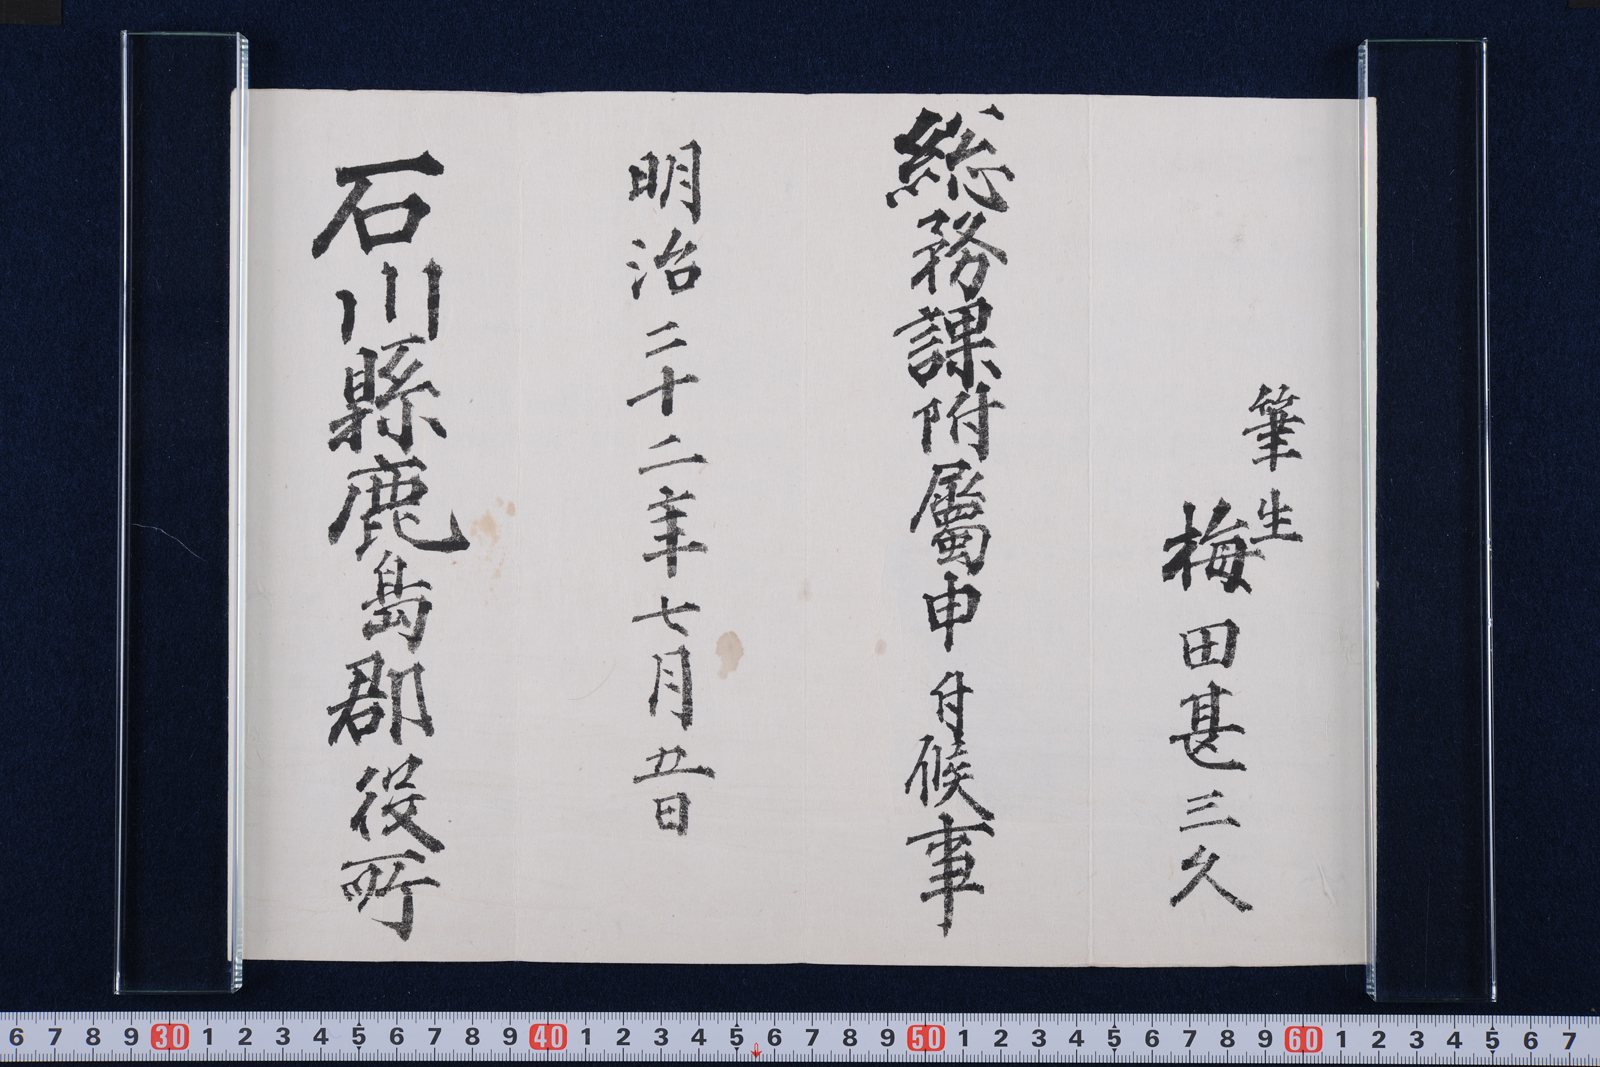 筆生
梅田甚三久
総務課附屬申付候事
明治二十二年七月五日
石川縣鹿島郡役所
6 7 8 9 30 1 2 3 4 5 6 7 8 9 40 1 2 3 4 5 6 7 8 9 50 1 2 3 4 5 6 7 8 9 60 1 2 3 4 5 6 7